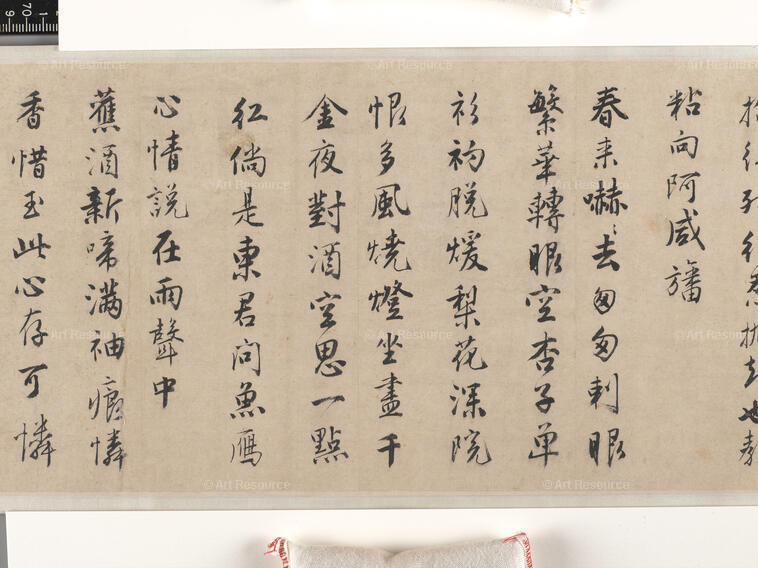 粘向阿咸旛
春来嚇〻去匆匆刺眼
繁華轉眼空杏子单
衫初脱煖梨花深院
恨多風燒燈坐盡千
金夜對酒空思一點
紅倘是東君問魚鴈
心情說在雨聲中
蕉酒新啼滿袖痕憐
香惜玉此心存可憐
© Art Resource